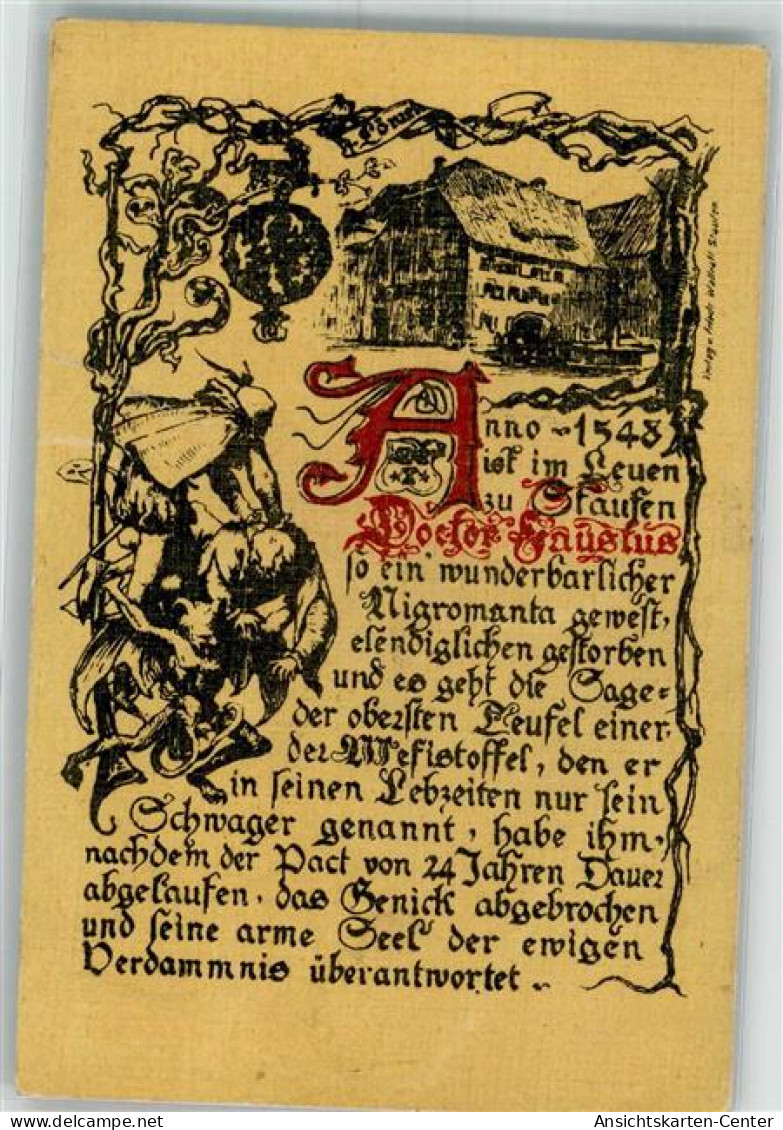 z. Löwen
Anno 1548
ist im Leuen
zu Staufen
Doctor Faustus
so ein wunderbarlicher
Nigromanta gewest,
elendiglichen gestorben
und es geht die Sage
der obersten Teufel einer,
der Mefistoffel, den er
in seinen Lebzeiten nur sein
Schwager genannt, habe ihm,
nachdem der Pact von 24 Jahren Dauer
abgelaufen, das Genick abgebrochen
und seine arme Seel der ewigen
Verdammnis überantwortet
Verlag v. Staufen
Ansichtskarten-Center